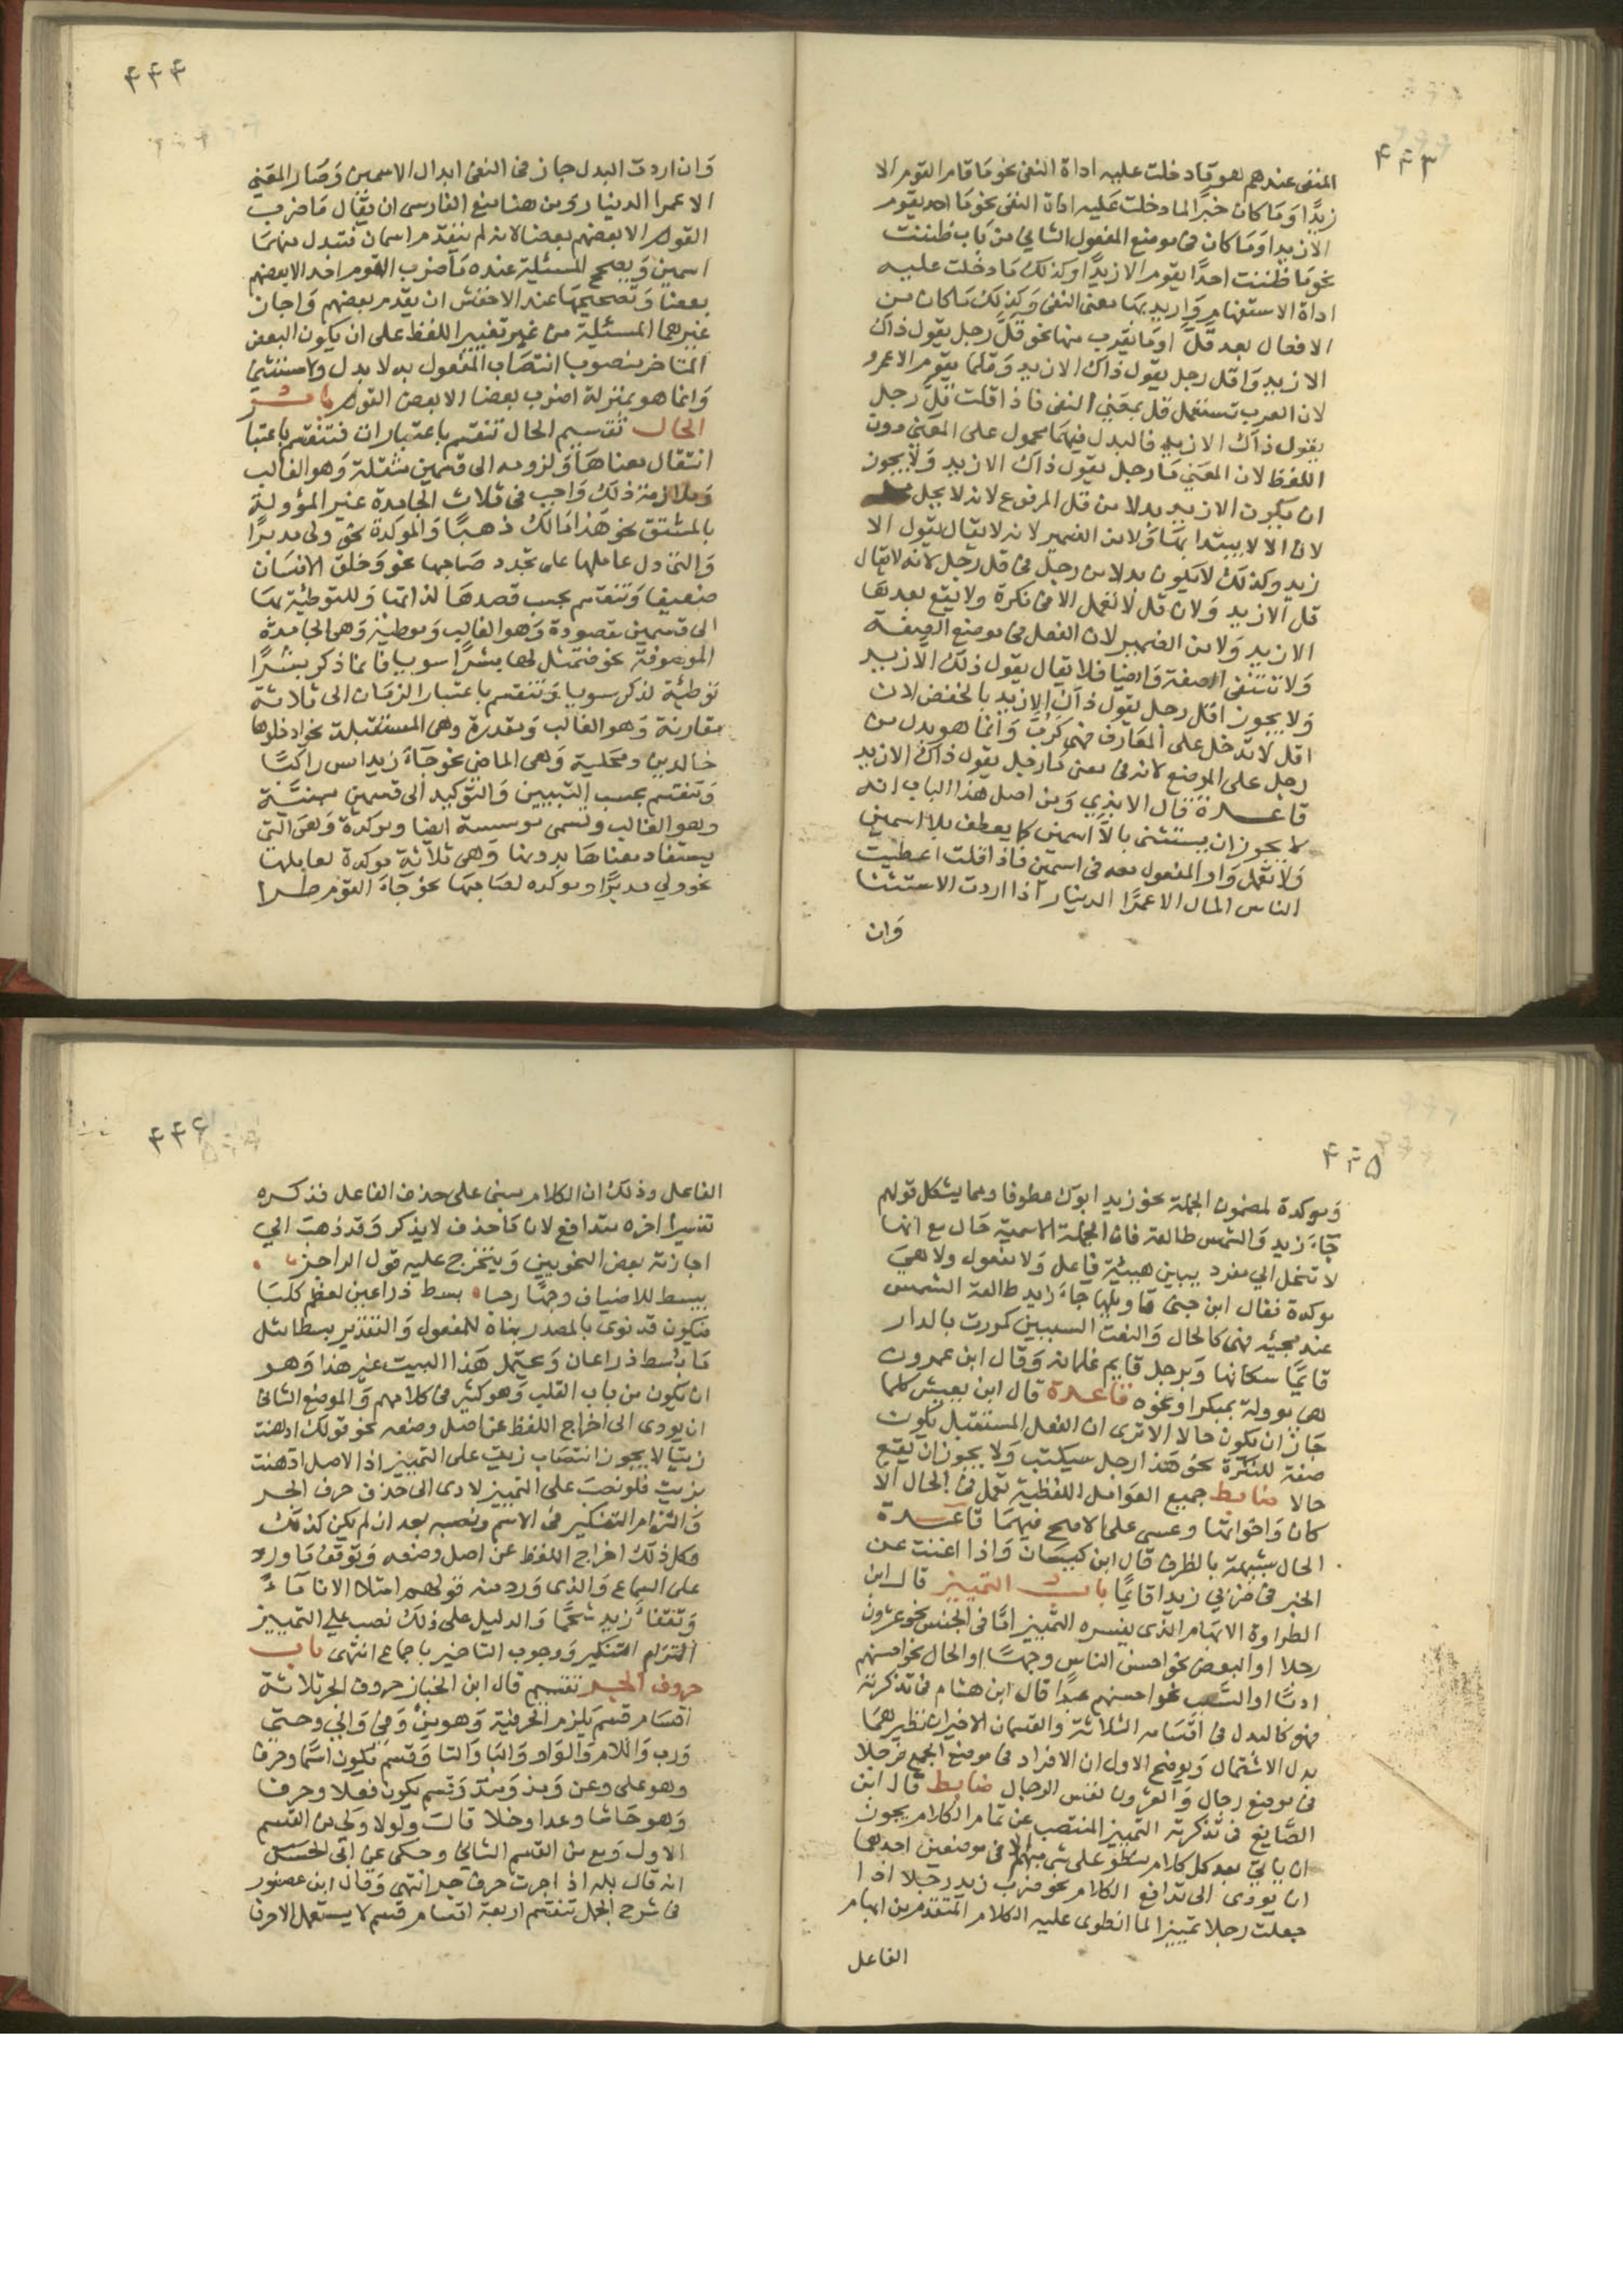 ۴۴۳
المنفى عندهم هو ما دخلت عليه اداة النفى نحو مَا قام القوم الا
زيدًا وَمَا كان خبرًا لما دخلت عَليه اداة النفى نحو مَا احد يقوم
الا زيدا وَمَا كان فى موضع المفعول الثانى من بَاب ظننت
نحو مَا ظننت احدًا يقوم الا زيدًا وكذلك مَا دخلت عليه
اداة الاستفهام وَاريد بهَا معنى النفى وَكذلك مَا كان من
الافعال بعد قلّ اومَا يقرب منها نحو قلّ رجل يقول ذاك
الا زيد وَاقل رجل يقول ذاك الا زيد وَقلما يقوم الا عمرو
لان العرب تستعمل قل بمعنى النفى فاذا قلت قلّ رجل
يقول ذاك الا زيد فالبدل فيهمَا محمول على المعنى دون
اللفظ لان المعنى مَا رجل يقول ذاك الا زيد وَلا يجوز
ان يكون الا زيد بدلا من قل المرفوع لانه لا يحل محله
لان الا لا يبتدا بهَا وَلا من الضمير لانه لا يقال يقول الا
زيد وكذلك لا يكون بدلا من رجل فى قل رجل لانه لا يقال
قل الا زيد وَلان قل لا تعمل الا فى نكرة ولا يقع بعدهَا
الا زيد وَلا من الضمير لان الفعل فى موضع الصفة
وَلا تنتفى الصفة وَايضا فلا يقال يقول ذلك الا زيد
وَلا يجوز اقل رجل يقول ذاك الا زيد بالخفض لان
اقل لا تدخل على المعَارف فهى كربّ وَانما هو بدل من
رجل على الموضع لانه فى معنى مَا رجل يقول ذاك الا زيد
قاعدة قال الابذي وَمن اصل هذا الباب انه
لا يجوز ان يستثنى بالاّ اسمين كما يعطف بلا اسمين
وَلا تعمل وَاو المفعول معه فى اسمين فاذا قلت اعطيت
الناس المال الا عمرًا الدينار اذا اردت الاستثنا
وَان
۴۴۴
وَان اردت البدل جاز فى النفى ابدال الاسمين وَصَار المعَنى
الا عمرا الدينار وَمن هنا منع الفارسى ان يقال مَا ضرب
القوم الا بعضهم بعضا لانه لم يتقدم اسمان فتبدل منهمَا
اسمين وَيصحح المسئلة عنده مَا ضرب القوم احد الا بعضهم
بعضا وَتصحيحهَا عند الاخفش ان يقدم بعضهم وَاجاز
غيرهما المسئلة من غير تغيير اللفظ على ان يكون البعض
المتاخر منصوبا انتصَاب المفعول به لا بدل ولا مستثنى
وَانما هو بمنزلة اضرب بعضا الا بعض القوم باب
الحال تقسيم الحال تنقسم باعتبارات فتنقسم باعتبا
انتقال معناهَا وَلزومه الى قسمين منتقلة وَهو الغالب
وَملازمة ذلك وَاجب فى ثلاث الجامدة غير المؤولة
بالمشتق نحو هَذا مَالك ذهبًا وَالموكدة نحو ولى مدبرًا
وَالتى دل عاملها على تجدد صَاحبها نحو وَخلق الانسَان
ضعيفا وَتنقسم بحسب قصدهَا لذاتها وَللتوطئة بهَا
الى قسمين مقصودة وَهو الغالب وَموطئة وَهى الجامدة
الموصوفة نحو فتمثل لها بشرًا سويا فانما ذكر بشرًا
توطئة لذكر سويا وَتنقسم باعتبار الزمَان الى ثلاثة
مقارنة وَهو الغالب وَمقدرة وهى المستقبلة نحو ادخلوها
خالدين ومحكية وَهى الماضى نحو جَاءَ زيد امس راكبًا
وَتنقسم بحسب التبيين وَالتوكيد الى قسمين مبينة
وهو الغالب وتسمى موسسة ايضا وموكدة وَهى التى
يستفاد معناهَا بدونها وَهى ثلاثة موكدة لعاملها
نحو ولي مدبرًا وموكده لصَاحبهَا نحو جَاءَ القوم طرا
۴۴۵
وَموكدة لمضمون الجملة نحو زيد ابوك عطوفا ومما يشكل قولهم
جَاءَ زيد وَالشمس طالعة فان الجملة الاسمية حَال مع انها
لا تنحل الي مفرد يبين هيئة فاعل وَلا مفعول ولا هىَ
موكدة فقال ابن جنى تاويلها جاءَ زيد طالعة الشمس
عند مجيئه فهى كالحال وَالنعت السببين كمررت بالدار
قايمًا سكانها وَبرجل قايم غلمانه وَقال ابن عمرون
هى موولة بمبكرا ونحوه قاعدة قال ابن يعيش كلما
جَاز ان يكون حالا الا ترى ان الفعل المستقبل يكون
صفة للنكرة نحو هَذا رجل سيكتب وَلا يجوز ان يقع
حالا ضابط جميع العوَامل اللفظية تعمل فى الحَال الا
كان وَاخواتها وعسى على الاصح فيهمَا قاعدة
الحال شبيهة بالظرف قال ابن كيسَان وَاذا اغنت عن
الخبر فى ضربي زيدا قايمًا باب التمييز قال ابن
الطراوة الابهَام الذى يفسره التمييز امّا فى الجنس نحو عشرون
رجلا او البعض نحو احسن الناس وجهًا او الحال نحو احسنهم
ادبًا او السبب نحو احسنهم عبدًا قال ابن هشام فى تذكرته
فهو كالبدل فى اقسَامه الثلاثة وَالقسمان الاخيران نظيرهمَا
بدل الاشتمال وَيوضح الاول ان الافراد فى موضع الجمع فرجلا
فى موضع رجال وَالعشرون نفس الرجال ضابط قال ابن
الصّايغ فى تذكرته التمييز المنتصب عن تمام الكلام يجوز
ان ياتي بعد كل كلام منطو على شى مبهم الا فى موضعين احدهما
ان يودى الى تدافع الكلام نحو ضرب زيد رجلا اذا
جعلت رجلا تمييزا لما انطوى عليه الكلام المتقدم من ابهام
الفاعل
۴۴۶
الفاعل وذلك ان الكلام مبنى على حذف الفاعل فذكره
تفسيرا اخره متدافع لان مَا حذف لا يذكر وَقد ذهبَ الي
اجازته بعض النحويين وَيتخرج عليه قول الراجز
يبسط للاضياف وجهًا رحبا بسط ذراعين لعظم كلبَا
فيكون قد نوى بالمصدر بناه للمفعول وَالتقدير بسطا مثل
مَا بُسط ذراعان وَيحتمل هَذا البيت غير هذا وَهو
ان يكون من باب القلب وَهو كثير فى كلامهم وَالموضع الثانى
ان يودى الى اخراج اللفظ عن اصل وضعه نحو قولك ادهنت
زيتًا لا يجوز انتصَاب زيت على التمييز اذ الاصل ادهنت
بزيت فلو نصبَ على التمييز لادى الى حذف حرف الجر
وَالتزام التنكير فى الاسم ونصبه بعد ان لم يكن كذلك
وكل ذلك اخراج اللفظ عن اصل وضعه وَتوقف مَا ورد
على السماع وَالذى وَرد منه قولهم امتلا الانا مَاءً
وَتفقا زيد شحمًا وَالدليل على ذلك نصب على التمييز
التزام التنكير وَوجوب التاخير باجماع انتهى باب
حروف الجر تقسيم قال ابن الخباز حروف الجر ثلاثة
اقسَام قسم يلزم الحرفية وَهو من وَفى وَالي وحتى
وَرب وَاللام وَالوَاو وَالبا وَالتا وَقسم يكون اسمًا وحرفا
وهو على وعن وَمذ وَمنذ وَقسم يكون فعلا وحرفا
وَهو حَاشا وعدا وخلا قالَ وَلولا وَكي من القسم
الاول وَمع من القسم الثاني وحكى عن ابى الحسن
انه قال بله اذ اجرت حرف جر انتهى وَقال ابن عصفور
فى شرح الجمل تنقسم اربعة اقسام قسم لا يستعمل الا حرفا